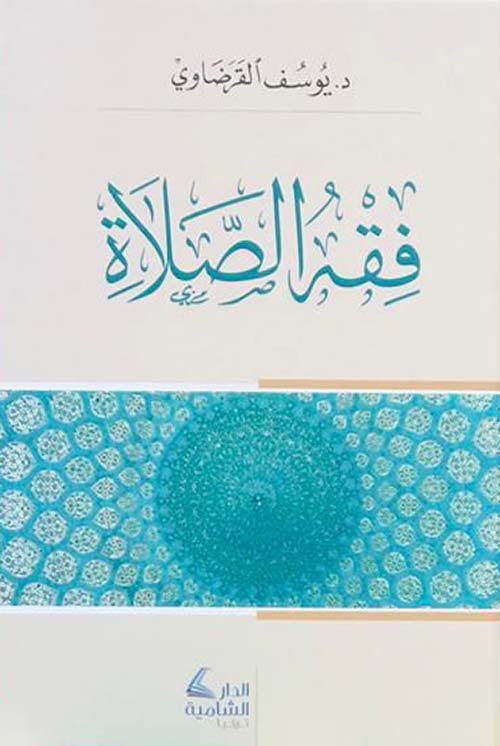 د. يُوسُف القَرَضَاوِيْ
فِقْهُ الصَّلَاةِ
الدار
الشامية
تركيا